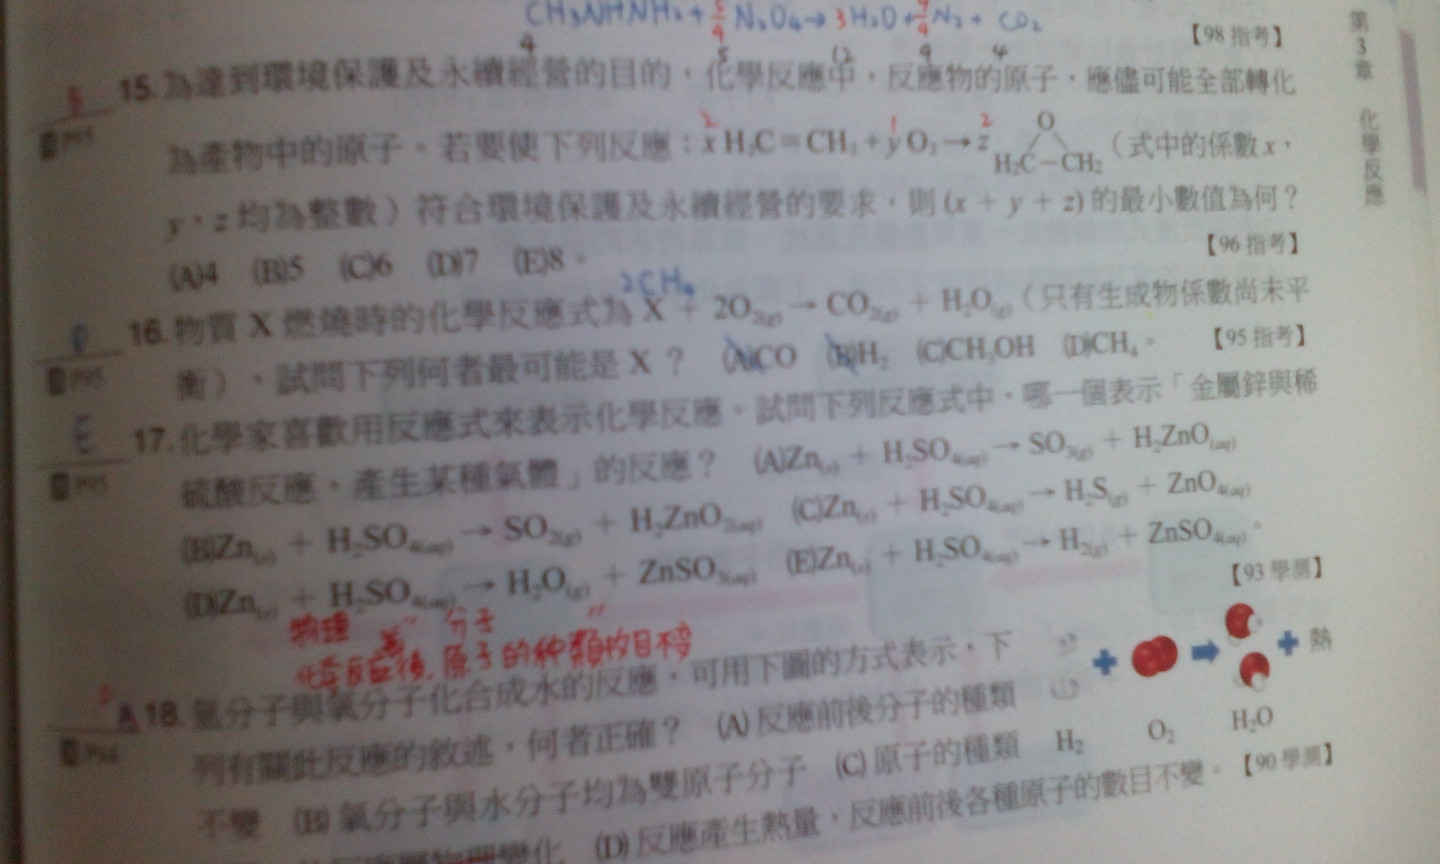 CH3NHNH2 + 5/4 N2O4 → 3H2O + 9/4 N2 + CO2
【98 指考】
4 5 12 9 4
第3章 化學反應
15. 為達到環境保護及永續經營的目的，化學反應中，反應物的原子，應儘可能全部轉化
P95
2 1 2
為產物中的原子。若要使下列反應：x H₂C＝CH₂ + y O₂ → z H₂C－CH₂ O（式中的係數 x，
y，z 均為整數）符合環境保護及永續經營的要求，則 (x + y + z) 的最小數值為何？
(A)4 (B)5 (C)6 (D)7 (E)8。
【96 指考】
2CH4
16. 物質 X 燃燒時的化學反應式為 X + 2O₂(g) → CO₂(g) + H₂O(g)（只有生成物係數尚未平
P95
衡），試問下列何者最可能是 X？ (A)CO (B)H₂ (C)CH₃OH (D)CH₄。
【95 指考】
E
17. 化學家喜歡用反應式來表示化學反應。試問下列反應式中，哪一個表示「金屬鋅與稀
P95
硫酸反應，產生某種氣體」的反應？ (A)Zn(s) + H₂SO₄(aq) → SO₃(g) + H₂ZnO(aq)
(B)Zn(s) + H₂SO₄(aq) → SO₂(g) + H₂ZnO₂(aq) (C)Zn(s) + H₂SO₄(aq) → H₂S(g) + ZnO₄(aq)
(D)Zn(s) + H₂SO₄(aq) → H₂O(g) + ZnSO₃(aq) (E)Zn(s) + H₂SO₄(aq) → H₂(g) + ZnSO₄(aq)。
【93 學測】
物理 " 分子 "
化學反應後，原子的种類数目不变
A 18. 氫分子與氧分子化合成水的反應，可用下圖的方式表示，下
列有關此反應的敘述，何者正確？ (A) 反應前後分子的種類
不變 (B) 氧分子與水分子均為雙原子分子 (C) 原子的種類
(D) 反應產生熱量，反應前後各種原子的數目不變。
【90 學測】
+ + 熱
H₂ O₂ H₂O